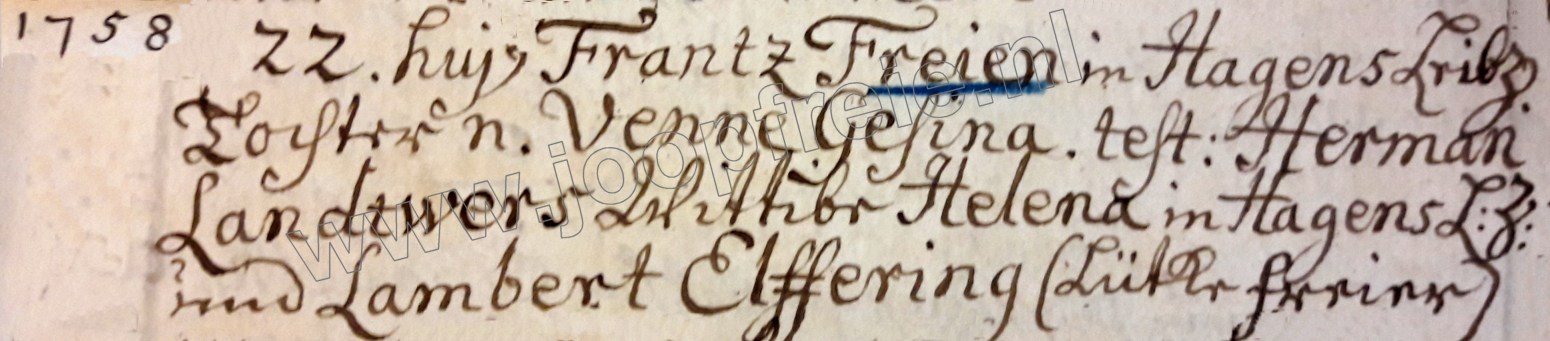 1758
22. hujs Frantz Freien in Hagens Leibz.
Tochter n. Venne Gesina. test: Herman
Landtwers Wittibe Helena in Hagens L:Z:
und Lambert Elffering (Lütke freier)
www.joopfreie.nl